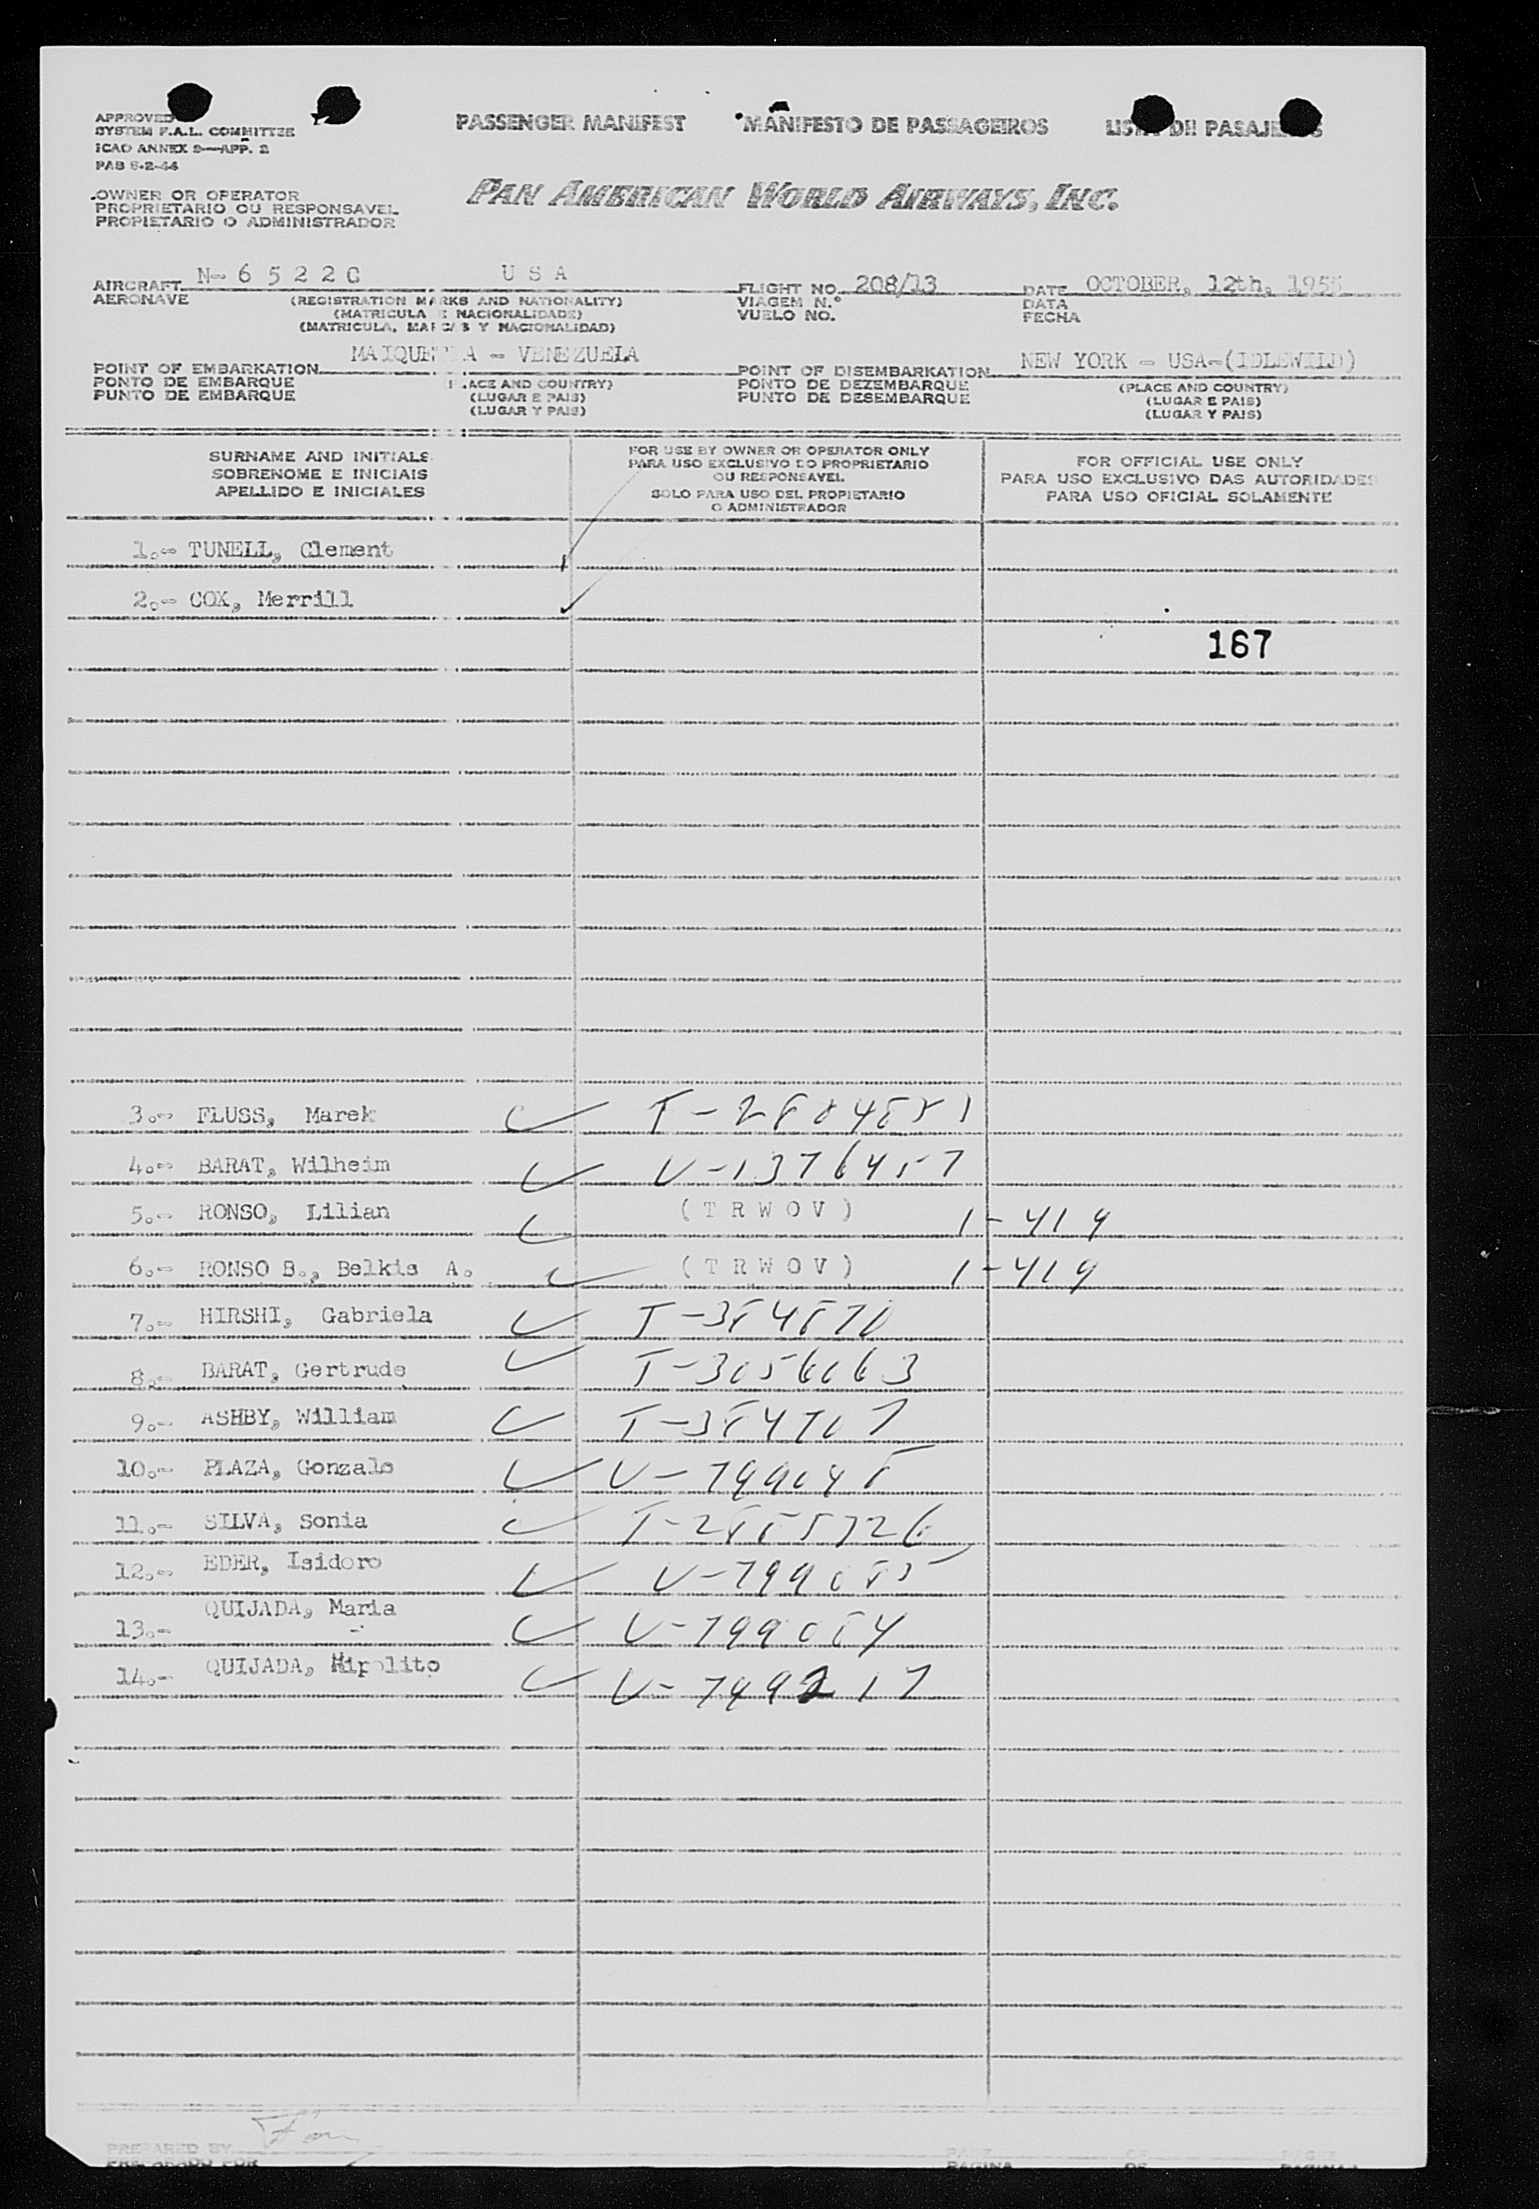 APPROVED
SYSTEM F.A.L. COMMITTEE
ICAO ANNEX 9—APP. 2
PAB 8-2-44
PASSENGER MANIFEST MANIFESTO DE PASSAGEIROS LISTA DE PASAJEROS
OWNER OR OPERATOR
PROPRIETARIO OU RESPONSAVEL
PROPIETARIO O ADMINISTRADOR
PAN AMERICAN WORLD AIRWAYS, INC.
AIRCRAFT N- 6 5 2 2 C U S A FLIGHT NO. 208/13 DATE OCTOBER, 12th, 1955
AERONAVE (REGISTRATION MARKS AND NATIONALITY) VIAGEM N.º DATA
(MATRICULA E NACIONALIDADE) VUELO NO. FECHA
(MATRICULA, MARCAS Y NACIONALIDAD)
POINT OF EMBARKATION MAIQUETIA - VENEZUELA POINT OF DISEMBARKATION NEW YORK - USA-(IDLEWILD)
PONTO DE EMBARQUE (PLACE AND COUNTRY) PONTO DE DEZEMBARQUE (PLACE AND COUNTRY)
PUNTO DE EMBARQUE (LUGAR E PAIS) PUNTO DE DESEMBARQUE (LUGAR E PAIS)
(LUGAR Y PAIS) (LUGAR Y PAIS)
SURNAME AND INITIALS
SOBRENOME E INICIAIS
APELLIDO E INICIALES
FOR USE BY OWNER OR OPERATOR ONLY
PARA USO EXCLUSIVO DO PROPRIETARIO
OU RESPONSAVEL
SOLO PARA USO DEL PROPIETARIO
O ADMINISTRADOR
FOR OFFICIAL USE ONLY
PARA USO EXCLUSIVO DAS AUTORIDADES
PARA USO OFICIAL SOLAMENTE
1.- TUNELL, Clement
2.- COX, Merrill
167
3.- FLUSS, Marek
4.- BARAT, Wilheim V-1376457
5.- RONSO, Lilian ( T R W O V ) 1-419
6.- RONSO B., Belkis A. ( T R W O V ) 1-419
7.- HIRSHI, Gabriela T-384870
8.- BARAT, Gertrude T-3056063
9.- ASHBY, William T-384707
10.- PLAZA, Gonzalo V-799048
11.- SILVA, Sonia T-2885726
12.- EDER, Isidoro V-799085
13.- QUIJADA, Maria V-799084
14.- QUIJADA, Hipolito V-799217
PREPARED BY
PREPARADO POR
PAGINA DE